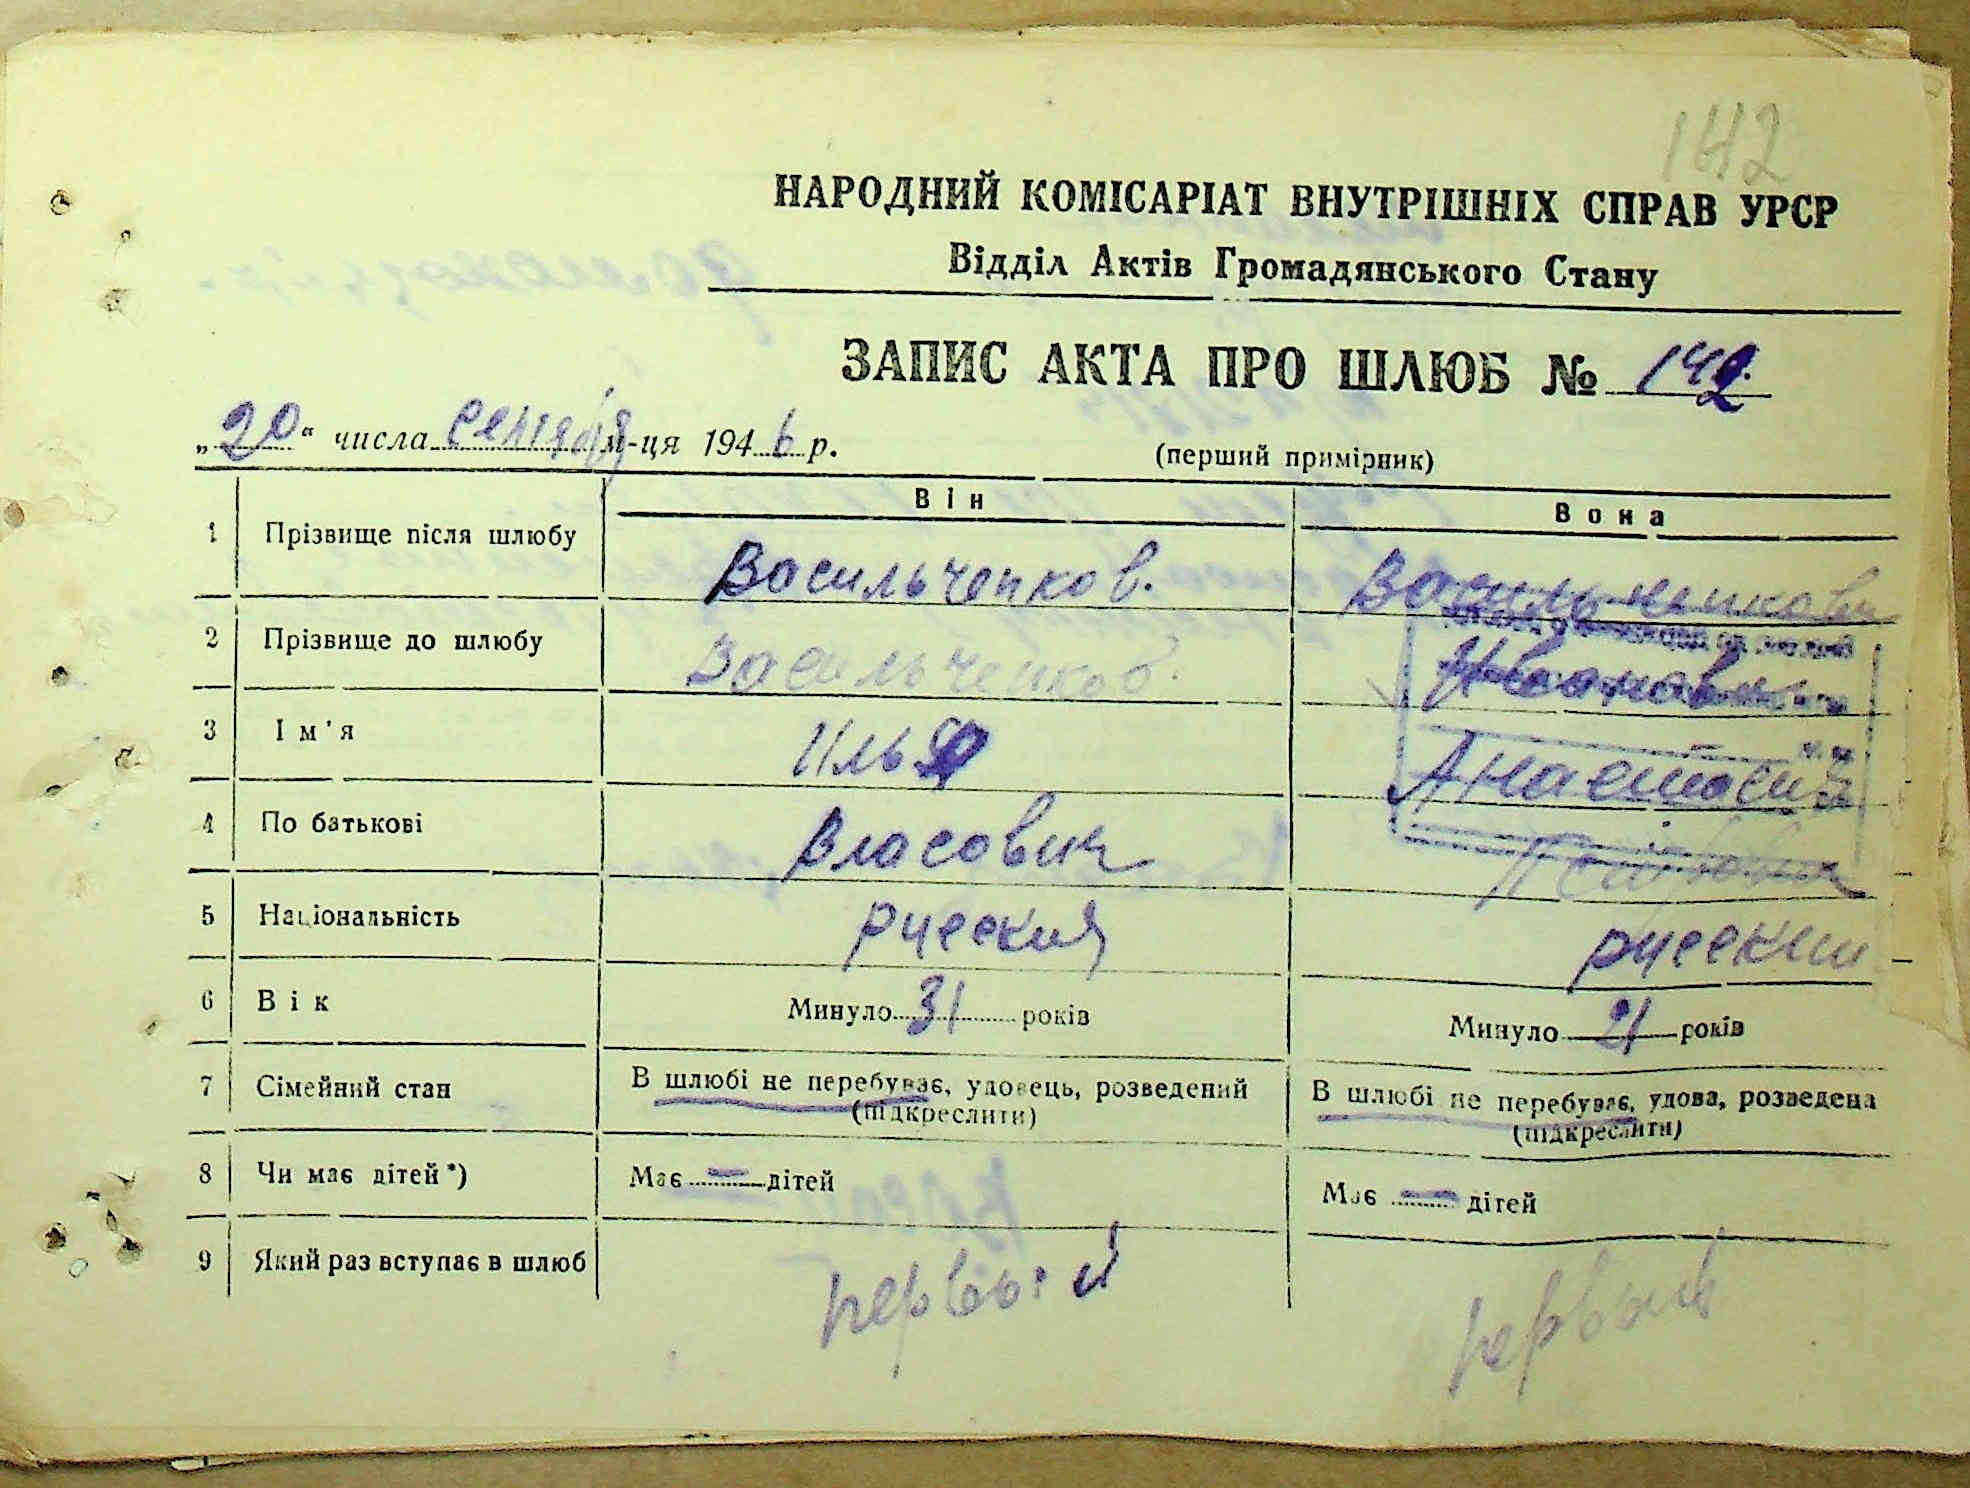 142
НАРОДНИЙ КОМІСАРІАТ ВНУТРІШНІХ СПРАВ УРСР
Відділ Актів Громадянського Стану
ЗАПИС АКТА ПРО ШЛЮБ № 142.
„20“ числа Сентября м-ця 1946 р.
(перший примірник)
Він
Вона
1 Прізвище після шлюбу Васильченков. Васильченкова
2 Прізвище до шлюбу Васильченков. Иванова
3 Ім'я Илья Анастасия
4 По батькові Власович Петровна
5 Національність русский русская
6 Вік Минуло 31 років Минуло 21 років
7 Сімейний стан В шлюбі не перебуває, удовець, розведений В шлюбі не перебуває, удова, розведена
(підкреслити) (підкреслити)
8 Чи має дітей*) Має — дітей Має — дітей
9 Який раз вступає в шлюб первый первый